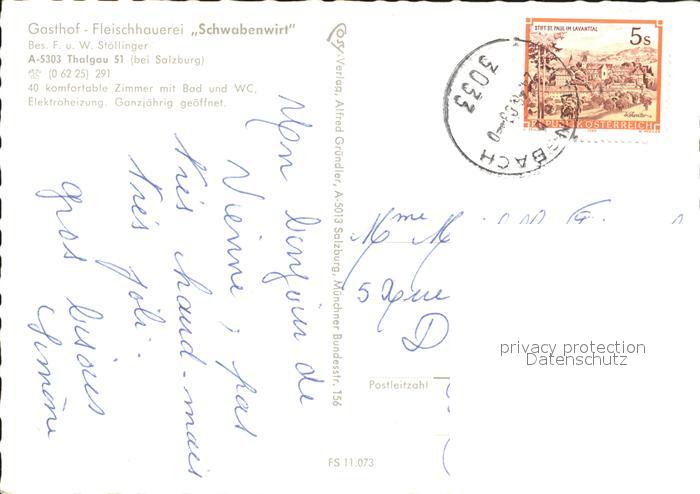 Gasthof - Fleischhauerei „Schwabenwirt"
Bes. F. u. W. Stöllinger
A-5303 Thalgau 51 (bei Salzburg)
☏ (0 62 25) 291
40 komfortable Zimmer mit Bad und WC,
Elektroheizung. Ganzjährig geöffnet.
Un bonjour de
Vienne, pas
très chaud - mais
très joli.
gros bisous
Simone
Cosy-Verlag, Alfred Gründler, A-5013 Salzburg, Münchner Bundesstr. 156
STIFT ST. PAUL IM LAVANTTAL
5s
REPUBLIK ÖSTERREICH
3033
BACH
Mme M
5 Rue
D
privacy protection
Datenschutz
Postleitzahl
FS 11.073